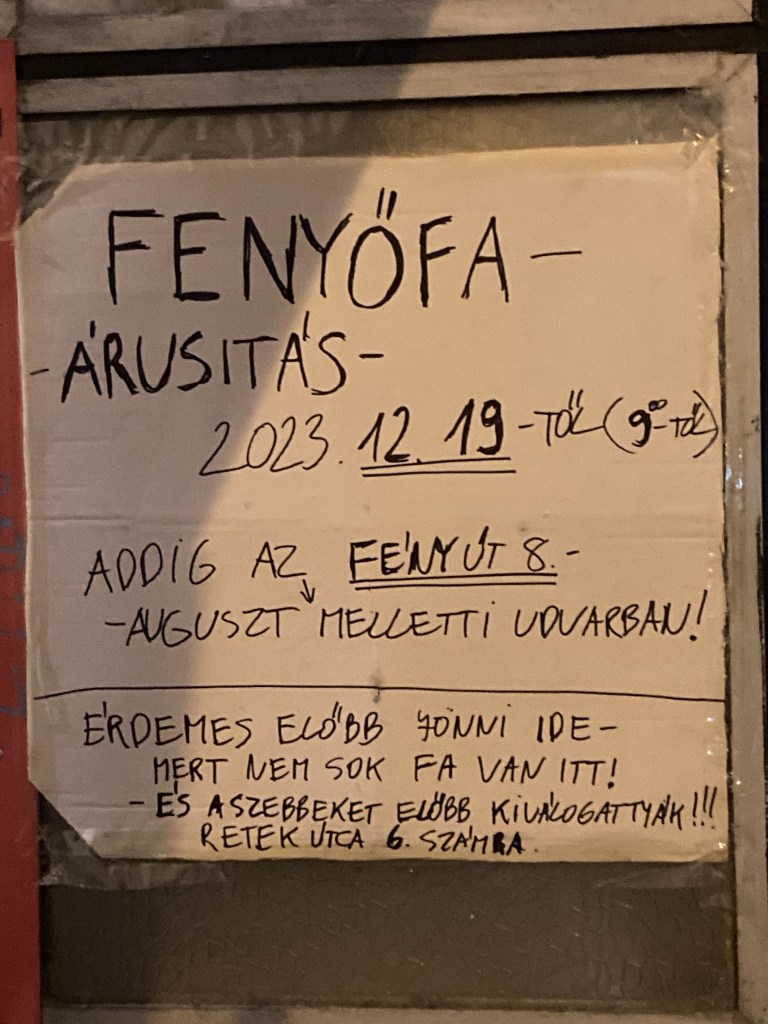 FENYŐFA-
-ÁRUSITÁS-
2023. 12. 19-TŐL (9⁰⁰-TŐL)
ADDIG AZ FÉNY ÚT 8.-
-AUGUSZT MELLETTI UDVARBAN!
ÉRDEMES ELŐBB JÖNNI IDE-
MERT NEM SOK FA VAN ITT!
-ÉS A SZEBBEKET ELŐBB KIVÁLOGATTYÁK!!!
RETEK UTCA 6. SZÁMRA.